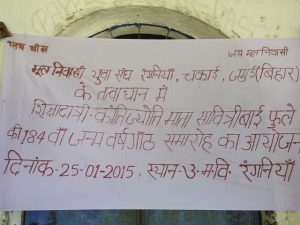 जय भीम
जय मूल निवासी
मूल निवासी युवा संघ रंगनियाँ, चकाई, जमुई (बिहार)
के तत्वाधान में
शिक्षादात्री - क्रांतिज्योति माता सावित्रीबाई फूले
की 184 वाँ जन्म वर्षगाँठ समारोह का आयोजन
दिनांक-25-01-2015, स्थान-उ. म. वि. रंगनियाँ